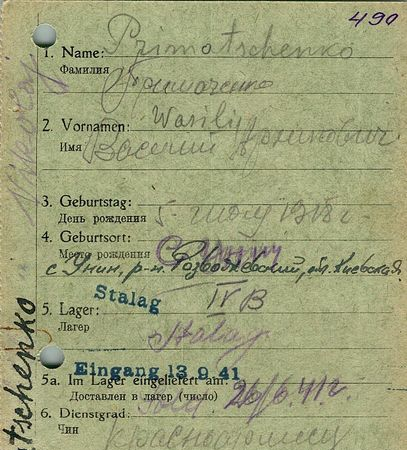 490
1. Name: Primatschenko
Фамилия Примаченко
2. Vornamen: Wasilij
Имя Василий Архипович
3. Geburtstag:
День рождения 5 июля 1918 г
4. Geburtsort:
Место рождения
с Унин, р-н Розважевский, обл. Киевская
5. Lager: Stalag IV B
Лагер Stalag
Eingang 13. 9. 41
5a. Im Lager eingeliefert am:
Доставлен в лагер (число) 26/6. 41 г.
6. Dienstgrad:
Чин красноармеец
tschenko